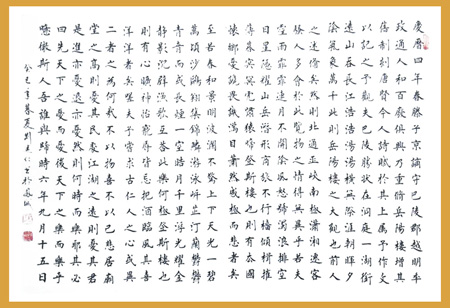 慶曆四年春滕子京謫守巴陵郡越明年
政通人和百廢俱興乃重修岳陽樓增其
舊制刻唐賢今人詩賦於其上屬予作文
以記之予觀夫巴陵勝狀在洞庭一湖銜
遠山吞長江浩浩湯湯橫無際涯朝暉夕
陰氣象萬千此則岳陽樓之大觀也前人
之述備矣然則北通巫峽南極瀟湘遷客
騷人多會於此覽物之情得無異乎若夫
霪雨霏霏連月不開陰風怒號濁浪排空
日星隱曜山岳潛形商旅不行檣傾楫摧
薄暮冥冥虎嘯猿啼登斯樓也則有去國
懷鄉憂讒畏譏滿目蕭然感極而悲者矣
至若春和景明波瀾不驚上下天光一碧
萬頃沙鷗翔集錦鱗游泳岸芷汀蘭鬱鬱
青青而或長煙一空皓月千里浮光耀金
靜影沉璧漁歌互答此樂何極登斯樓也
則有心曠神怡寵辱皆忘把酒臨風其喜
洋洋者矣嗟夫予嘗求古仁人之心或異
二者之為何哉不以物喜不以己悲居廟
堂之高則憂其民處江湖之遠則憂其君
是進亦憂退亦憂然則何時而樂耶其必
曰先天下之憂而憂後天下之樂而樂乎
噫微斯人吾誰與歸時六年九月十五日
癸巳年暮夏